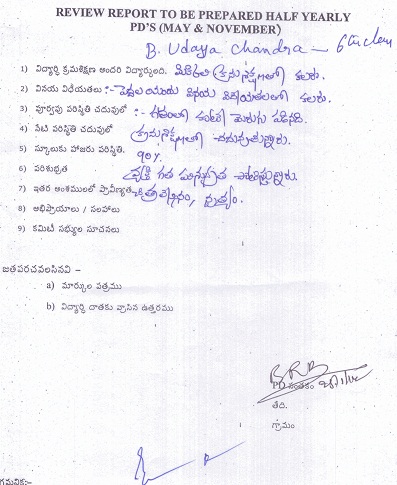 REVIEW REPORT TO BE PREPARED HALF YEARLY
PD'S (MAY & NOVEMBER)
B. Udaya Chandra – 6th class
1) విద్యార్థి క్రమశిక్షణ అందరి విద్యార్థులది. క్రమశిక్షణతో కలరు.
2) వినయ విధేయతలు :- పెద్దల యెడు వినయ విధేయతలతో కలరు.
3) పూర్వపు పరిస్థితి చదువులో :- గతంలో కంటే మెరుగు పడినది.
4) నేటి పరిస్థితి చదువులో క్రమశిక్షణతో చదువుతున్నారు.
5) స్కూలుకు హాజరు పరిస్థితి. 90%
6) పరిశుభ్రత వ్యక్తి గత పరిశుభ్రత పాటిస్తున్నారు.
7) ఇతర అంశములలో ప్రావీణ్యత చిత్రలేఖనం, నృత్యం.
8) అభిప్రాయాలు / సలహాలు
9) కమిటీ సభ్యుల సూచనలు
జతపరచవలసినవి –
a) మార్కుల పత్రము
b) విద్యార్థి దాతకు వ్రాసిన ఉత్తరము
PD సంతకం
తేది.
గ్రామం
గమనిక:-